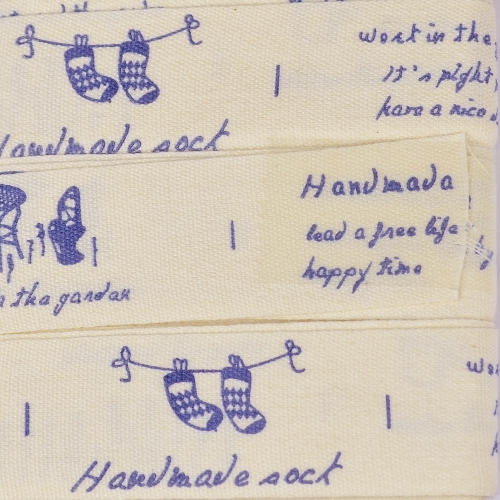 work in the
It's night
hava a nice
Handmade sock
Handmada
lead a free life
happy time
n tha gardan
Handmade sock